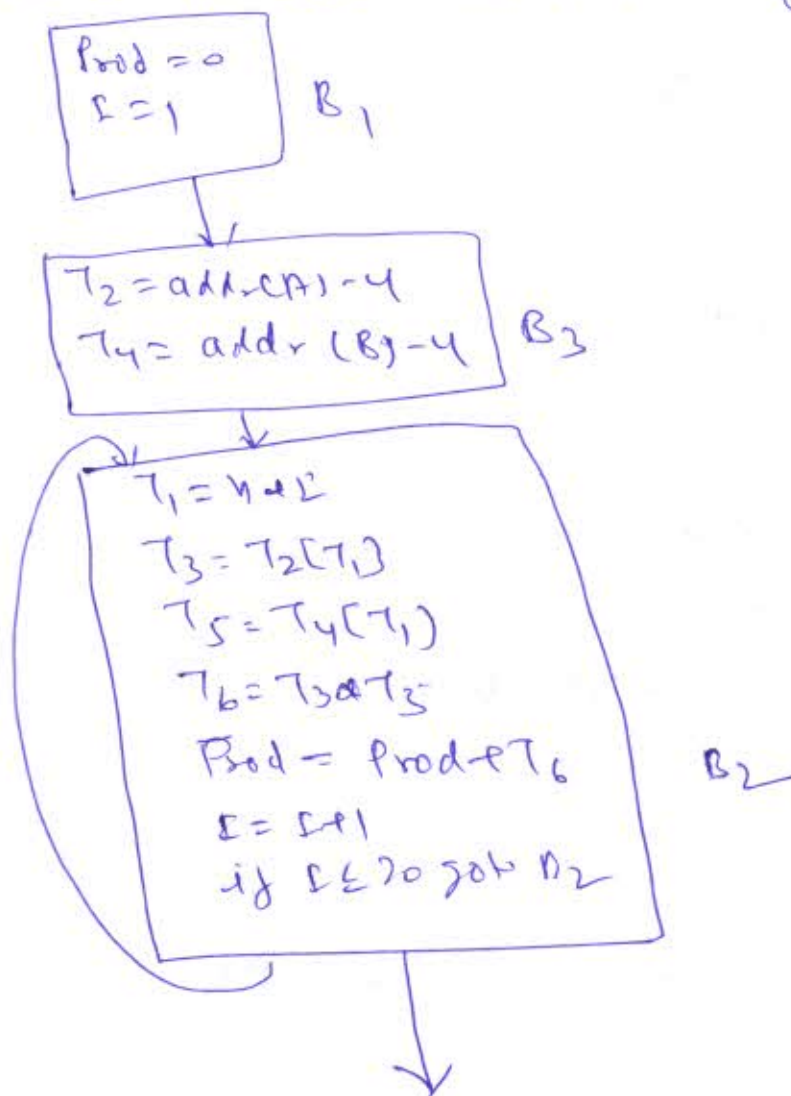 Prod = 0
I = 1
B1
T2 = addr(A) - 4
T4 = addr (B) - 4
B3
T1 = 4 * I
T3 = T2[T1]
T5 = T4[T1]
T6 = T3 * T5
Prod = Prod + T6
I = I + 1
if I ≤ 20 goto B2
B2